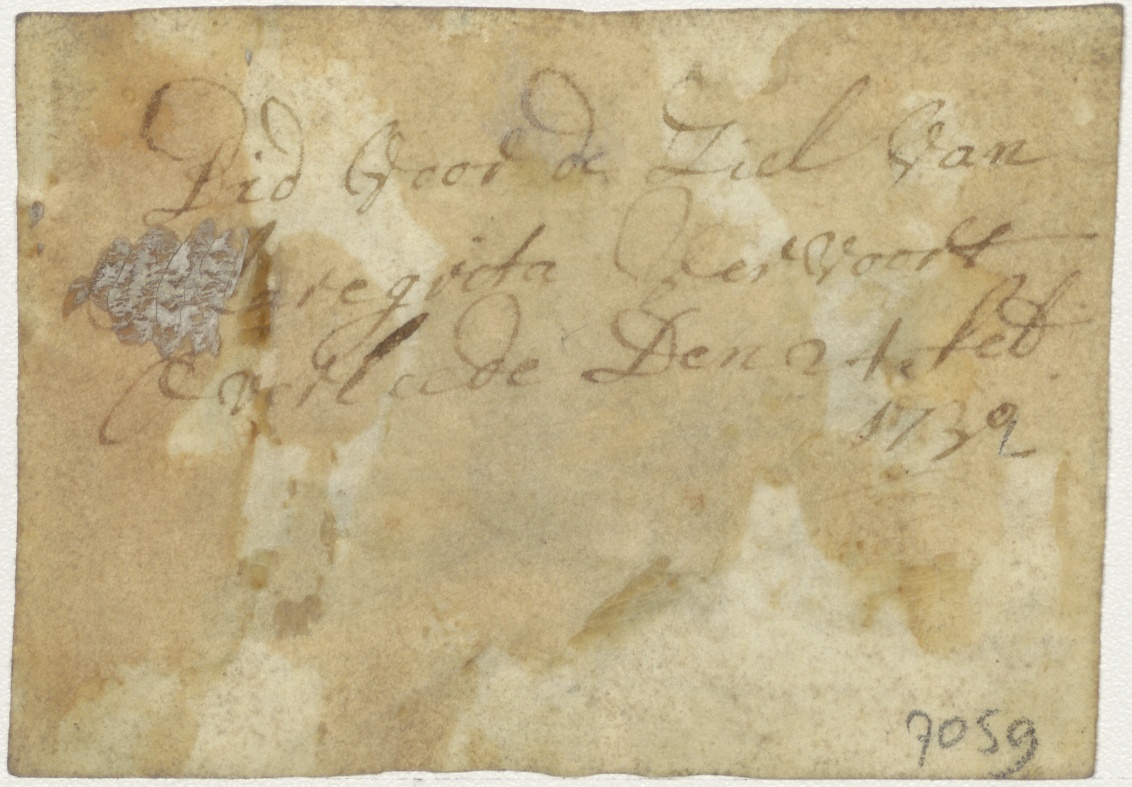 Bid Voor de Ziel Van
Margrita Vervoort
Overleede Den 24. feb
1739
7059